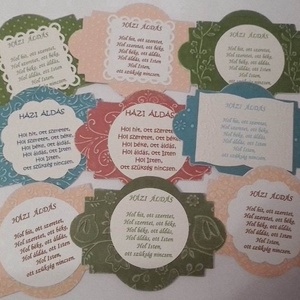 HÁZI ÁLDÁS
Hol hit, ott szeretet,
Hol szeretet, ott béke,
Hol béke, ott áldás,
Hol áldás, ott Isten,
Hol Isten,
ott szükség nincsen.
HÁZI ÁLDÁS
Hol hit, ott szeretet,
Hol szeretet, ott béke,
Hol béke, ott áldás,
Hol áldás, ott Isten,
Hol Isten,
ott szükség nincsen.
HÁZI ÁLDÁS
Hol hit, ott szeretet,
Hol szeretet, ott béke,
Hol béke, ott áldás,
Hol áldás, ott Isten,
Hol Isten,
ott szükség nincsen.
HÁZI ÁLDÁS
Hol hit, ott szeretet,
Hol szeretet, ott béke,
Hol béke, ott áldás,
Hol áldás, ott Isten,
Hol Isten,
ott szükség nincsen.
HÁZI ÁLDÁS
Hol hit, ott szeretet,
Hol szeretet, ott béke,
Hol béke, ott áldás,
Hol áldás, ott Isten,
Hol Isten,
ott szükség nincsen.
HÁZI ÁLDÁS
Hol hit, ott szeretet,
Hol szeretet, ott béke,
Hol béke, ott áldás,
Hol áldás, ott Isten,
Hol Isten,
ott szükség nincsen.
HÁZI ÁLDÁS
Hol hit, ott szeretet,
Hol szeretet, ott béke,
Hol béke, ott áldás,
Hol áldás, ott Isten,
Hol Isten,
ott szükség nincsen.
HÁZI ÁLDÁS
Hol hit, ott szeretet,
Hol szeretet, ott béke,
Hol béke, ott áldás,
Hol áldás, ott Isten,
Hol Isten,
ott szükség nincsen.
HÁZI ÁLDÁS
Hol hit, ott szeretet,
Hol szeretet, ott béke,
Hol béke, ott áldás,
Hol áldás, ott Isten,
Hol Isten,
ott szükség nincsen.